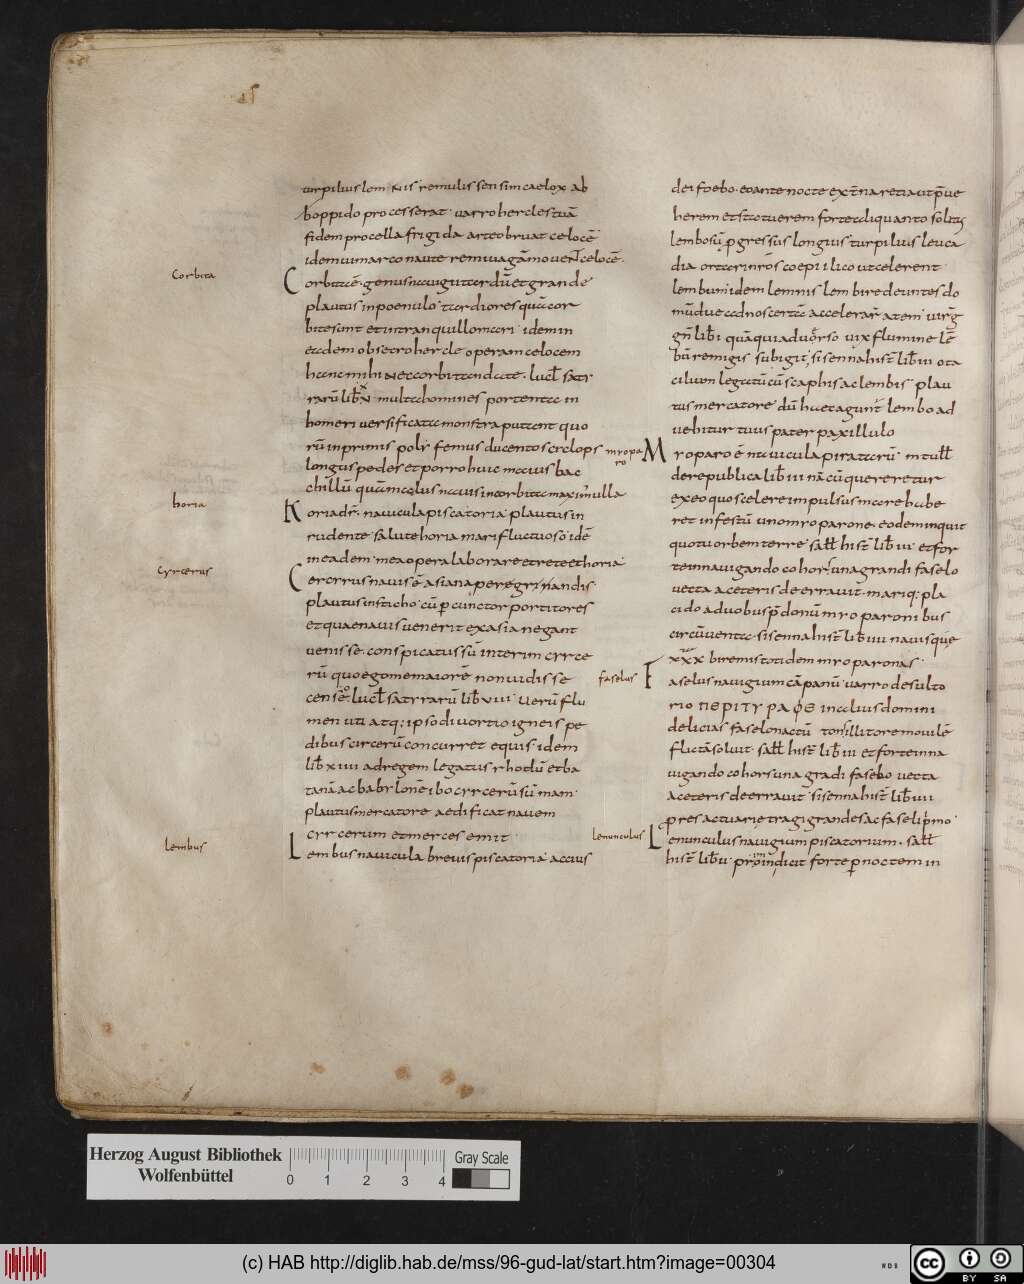 turpilius lemniis remulis sensim caelox ab
hoppido processerat. uarro hercles tuā
fidem procella frigida arte obruat celocē
idem uimarco naute remiuagā mouent celocē.
Corbita
Corbitaē. genus nauigii tardū et grande
plautus in poenulo tardiores quā cor
bite sunt et in tranquillo mari idem in
eadem obsecro hercle operam celocem
hanc mihi nec corbitam date. lucl satr
rarū lib x multa homines portenta in
homeri uersificata monstra putant quo
rū in primis polyfemus ducentos cyclops
longus pedes et porro huic maius bac
chillū quā malus nauis in corbita maximᵃ ulla
horia
Horia dr. nauicula piscatoria plautus in
rudente salute horia mari fluctuoso idē
in eadem mea opera laborare et rete et horia
cyrcerus
Cercyrus nauis ē asiana pergrandis
plautus in sticho. cū percunctor portitores
et quae nauis uenerit ex asia negant
uenisse. conspicatus sū interim cyrce
rū quo ego me maiorē non uidisse
censeo. lucl satyrarū lib viii uerū flu
men uti atq; ipso diuortio igneis pe
dibus circerū concurret equis idem
lib xiiii ad regem legatus rhodū etba
tanā ac babylonē ibo cyrcerū sūmam
plautus mercatore aedificat nauem
cyrcerum et merces emit
lembus
Lembus nauicula breuis piscatoria accius
dei foebo. eo ante nocte extena retia ut pue
herem et statuerem forte aliquanto solitus
lembosū progressus longius turpilius leuca
dia ortarinros coepi ilico ut celerent
lembum idem lemnis lembi redeuntes do
mū duo ad nos certā accelerar atem uirg
gn lib i quā qui aduorso uix flumine lē
bū remigiis subigit; sisenna hist lib iii ota
cilium legatū cū scaphis ac lembis plau
tus mercatore dū haec agunt lembo ad
uehitur tuus pater paxillulo
myopa
ro
Myoparo ē nauicula piratarū m tull
de republica lib iii nā cū quereretur
ex eo quo scelere impulsus mare habe
ret infestū uno myoparone. eodem inquit
quo tu orbem terre sall hist lib iii et for
te in nauigando cohors una grandi faselo
uecta a ceteris deerrauit. mariq; pla
cido a duobus pdonū myoparonibus
circūuenta. sisenna hist lib iiii nauisque
xxx biremis totidem myoparonas
faselus
Faselus nauigium cāpanū. uarro desulto
rio ΠΕΡΙ ΤΥΡΑΦΕ inclius domini
delicias faselon actū tonsillitore mouilē
fluctā soluit. sall hist lib iii et forte inna
uigando cohors una gradi faselo uecta
a ceteris deerrauit sisenna hist lib iiii
pres actuarie tragi grandes ac faseli primo
Lenunculus
Lenunculus nauigium piscatorium. sall
hist lib ii proin dicit forte per noctem in
Herzog August Bibliothek
Wolfenbüttel
0 1 2 3 4
Gray Scale
(c) HAB http://diglib.hab.de/mss/96-gud-lat/start.htm?image=00304
cc BY SA